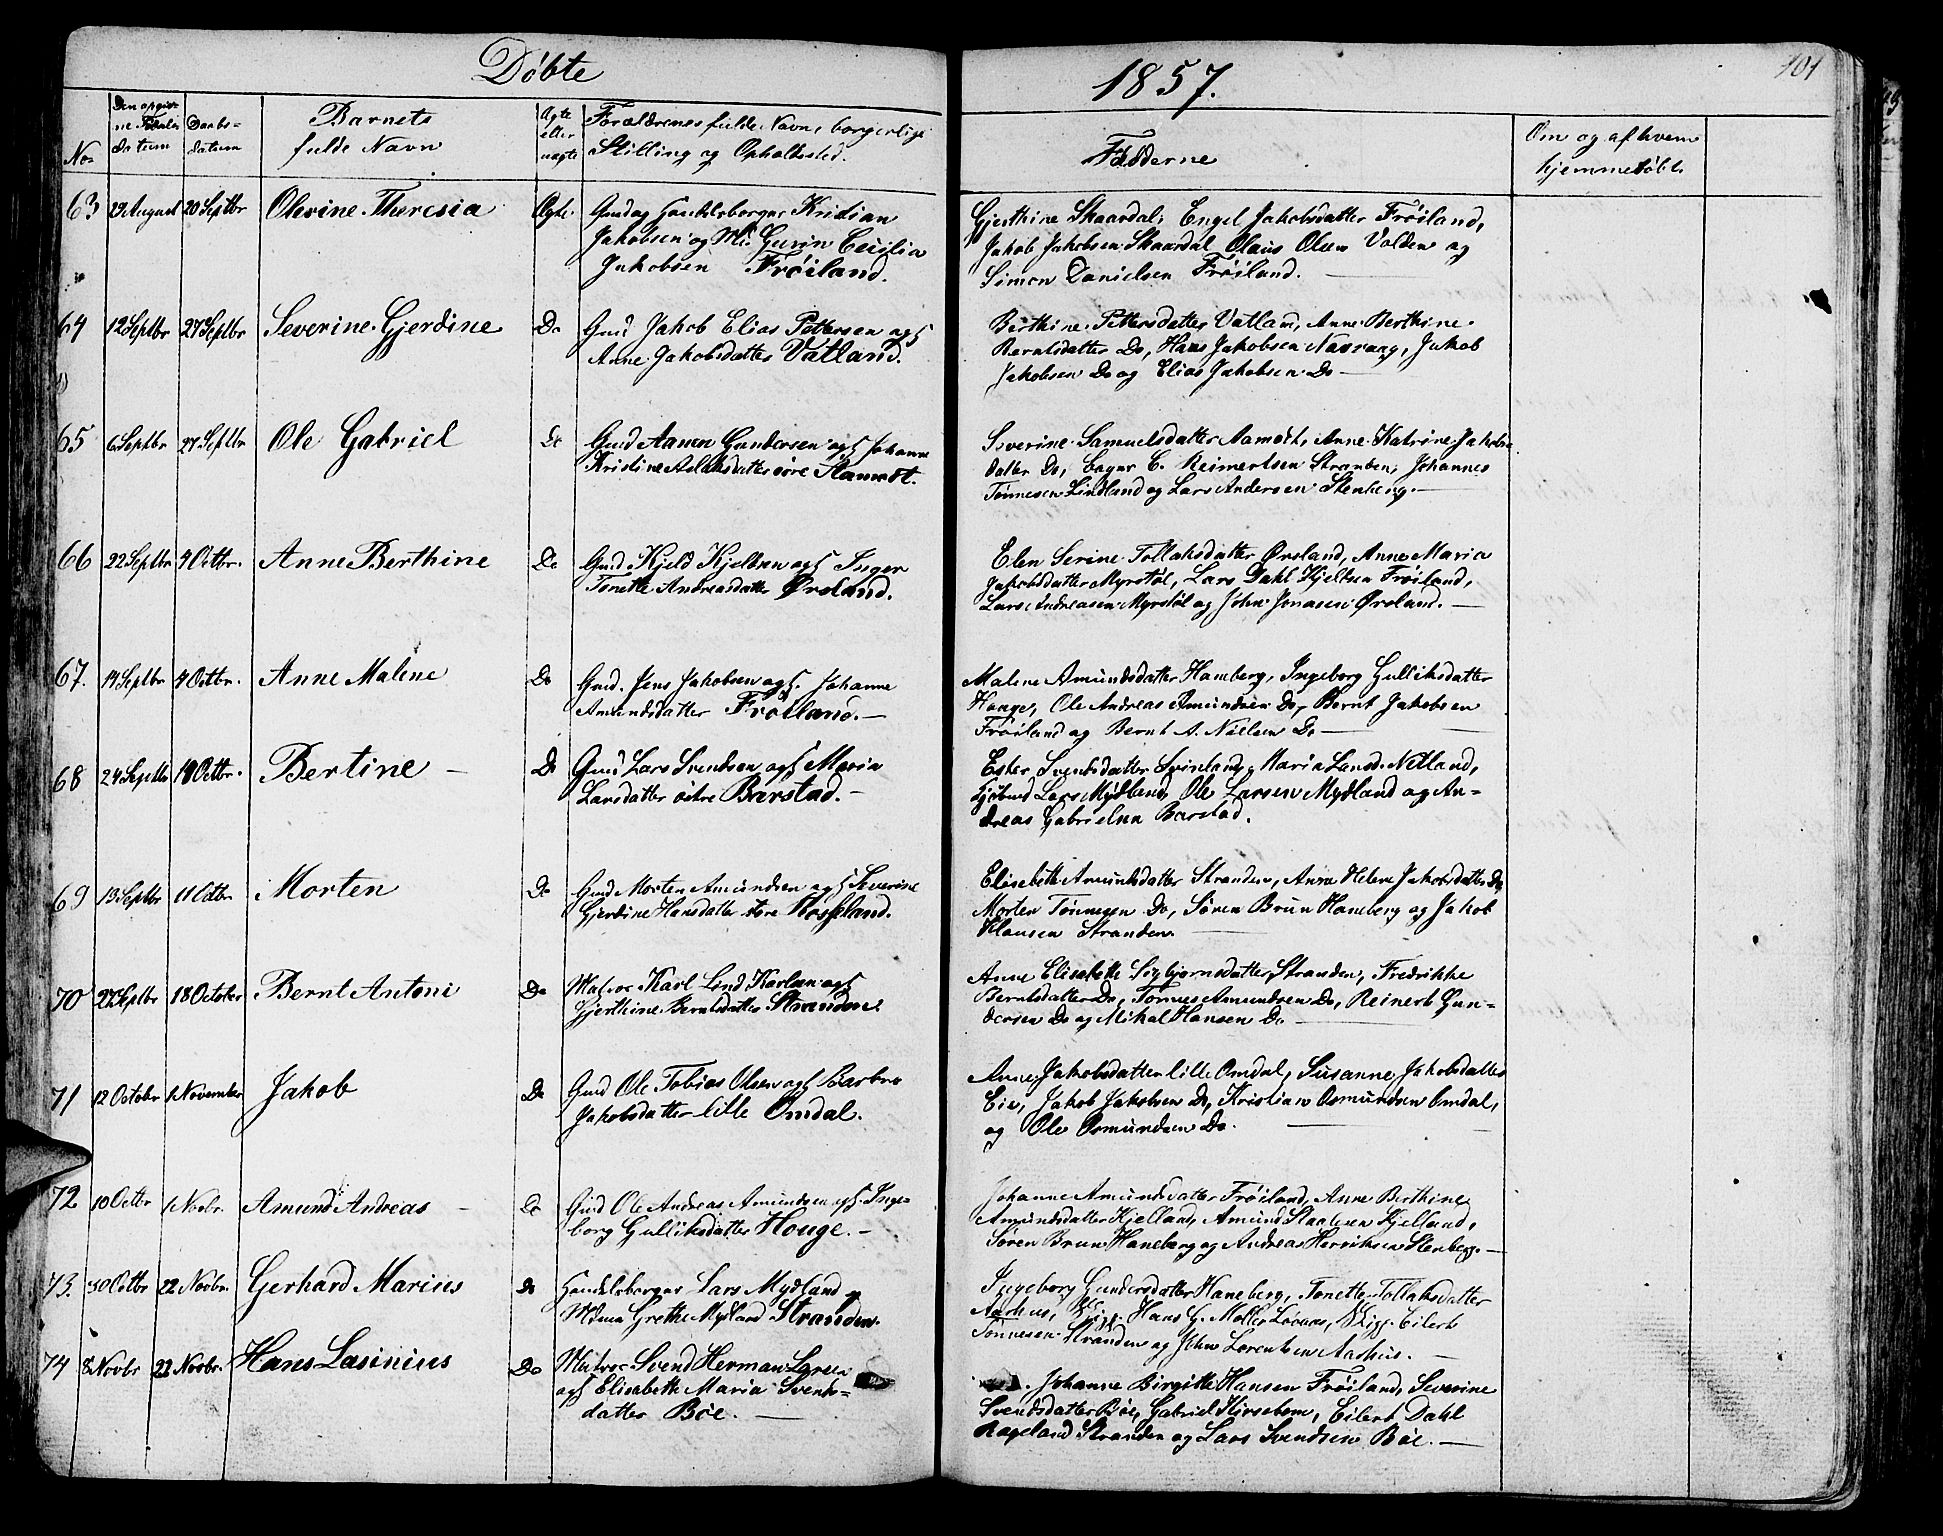 Døbte
1857.
101
No
Den opgiv-
ne Fødsels
datum
Daabs-
datum
Barnets
fulde Navn
Ægte
eller
uægte
Forældrenes fulde Navn, borgerlige
Stilling og Opholdssted.
Fadderne
Om og af hvem
hjemmedøbt
63 29 August 20 Septbr Olevine Theresia Ægte Gmd og Handelsborger Kristian
Jakobsen og Md. Gurin Cecilia
Jakobsen Frøiland.
Gjerthine Skaardal, Engel Jakobsdatter Frøiland,
Jakob Jakobsen Skaardal Olaus Olsen Volden og
Simon Danielsen Frøiland.
64 12 Septbr 27 Septbr Severine Gjerdine Do Gmd Jakob Elias Pettersen og h
Anne Jakobsdatter Vatland.
Berthine Pettersdatter Vatland, Anne Berthine
Berntsdatter Do, Hans Jakobsen Jakob
Jakobsen Do og Elias Jakobsen Do
65 6 Septbr 27 Septbr Ole Gabriel Do Gmd Aanen Gundersen og h Johanne
Kristine Aslaksdatter øvre Aamodt.
Severine Samuelsdatter Aamodt, Anne Katrine Jakobs-
datter Do, C. Reimertsen Stranden, Johannes
Tønnesen Lindland og Lars Andersen Stenberg.
66 22 Septbr 4 Octbr. Anne Berthine Do Gmd Kjeld Kjeldsen og h Inger
Tonette Andreasdatter Ørsland.
Elen Serine Tollaksdatter Ørsland, Anne Maria
Jakobsdatter Myrstøl, Lars Dahl Kjeldsen Frøiland,
Lars Andreasen Myrstøl og John Jonasen Ørsland.
67. 14 Septbr 4 Octbr. Anne Malene Do Gmd. Jens Jakobsen og h. Johanne
Amundsdatter Frøiland.
Malene Amundsdatter Haneberg, Ingeborg Gulliksdatter
Houge, Ole Andreas Amundsen Do, Bernt Jakobsen
Frøiland og Bernt A. Nielsen Do
68 24 Septbr Octbr. Bertine Do Gmd Lars Svendsen og h Maria
Larsdatter østre Barstad.
Ester Svendsdatter Svinland, Maria Larsd. Netland,
Lars Mydland, Ole Larsen Mydland og An-
dreas Gabrielsen Barstad.
69 13 Septbr 11 Octbr. Morten Do Gmd Morten Amundsen og h Severine
Gjerdine Hansdatter store Rosseland.
Elisebette Amundsdatter Stranden, Anne Helene Jakobsdatter Do
Morten Tønnesen Do, Søren Brun Haneberg og Jakob
Klausen Stranden.
70 27 Septbr 18 October Bernt Antoni Do Matros Karl Lind Karlsen og h
Gjerthine Berntsdatter Stranden.
Anne Elisebette Sigbjørnsdatter Stranden, Fredrikke
Berntsdatter Do, Tønnes Amundsen Do, Reinert Gun-
dersen Do og Mikal Hansen Do
71 12 October 1 November Jakob Do Gmd Ole Tobias Olsen og h Barbro
Jakobsdatter lille Omdal.
Anne Jakobsdatter lille Omdal, Susanne Jakobsdatter
Eie, Jakob Jakobsen Do, Kristian Osmundsen Omdal,
og Ole Osmundsen Do.
72 10 Octbr 1 Novbr. Amund Andreas Do Gmd Ole Andreas Amundsen og h. Inge-
borg Gulliksdatter Houge.
Johanne Amundsdatter Frøiland, Anne Berthine
Amundsdatter Kjelland, Amund Kjelland,
Søren Brun Haneberg og Andreas Henriksen Stenberg.
73. 30 Octbr 22 Novbr. Gerhard Marius Do Handelsborger Lars Mydland og
Mdme Grethe Mydland Stranden.
Ingeborg Gundersdatter Haneberg, Tonette Tollaksdatter
Aarhus, Hans G. Møller Eilert
Tønnesen Stranden og John Lorentsen Aarhus.
74 8 Novbr 22 Novbr. Hans Lasinius Do Matros Svend Herman Larsen
og h Elisabeth Maria Svends-
datter Bøe.
Johanne Birgitte Hansen Frøiland, Severine
Svendsdatter Bøe, Gabriel Kirsebom, Eilert Dahl
Rageland Stranden og Lars Svendsen Bøe.